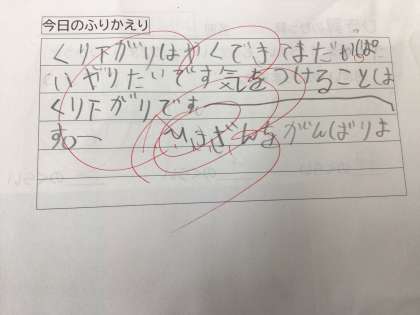 今日のふりかえり
くり下がりはやくできてまだいっぱ
いやりたいです気をつけることは
くり下がりです
ひっざんをがんばりま
す。